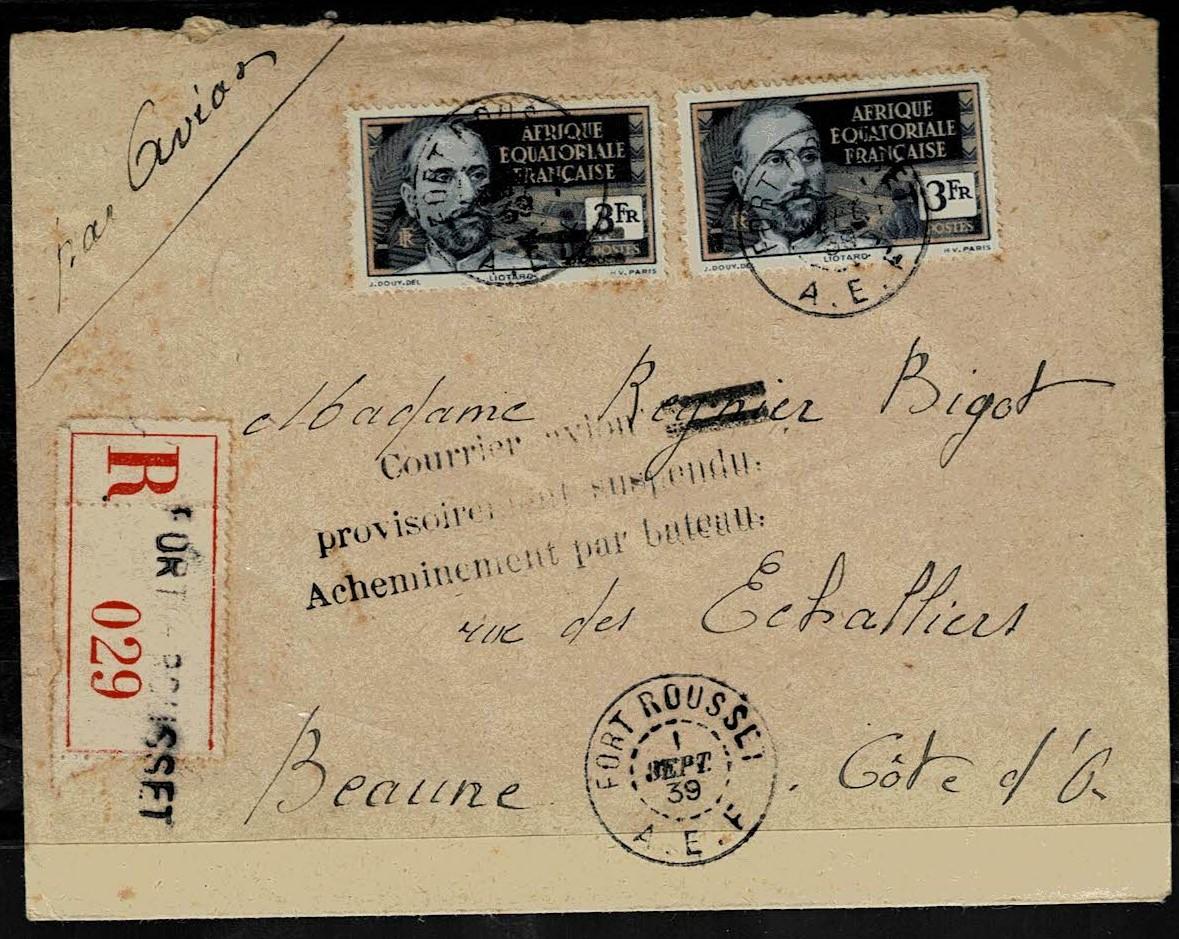 Par Avion
AFRIQUE
ÉQUATORIALE
FRANÇAISE
3 FR
RF
POSTES
J. DOUY. DEL
LIOTARD
H V. PARIS
FORT ROUS
39
A.E.
AFRIQUE
ÉQUATORIALE
FRANÇAISE
3 FR
RF
POSTES
J. DOUY. DEL
LIOTARD
H V. PARIS
FORT
39
A.E.F
Madame Regnier Bigot
Courrier avion
provisoirement suspendu.
Acheminement par bateau.
rue des Echalliers
R
FORT-ROUSSET
029
FORT ROUSSET
1
SEPT.
39
A.E.F
Beaune. Côte d'Or